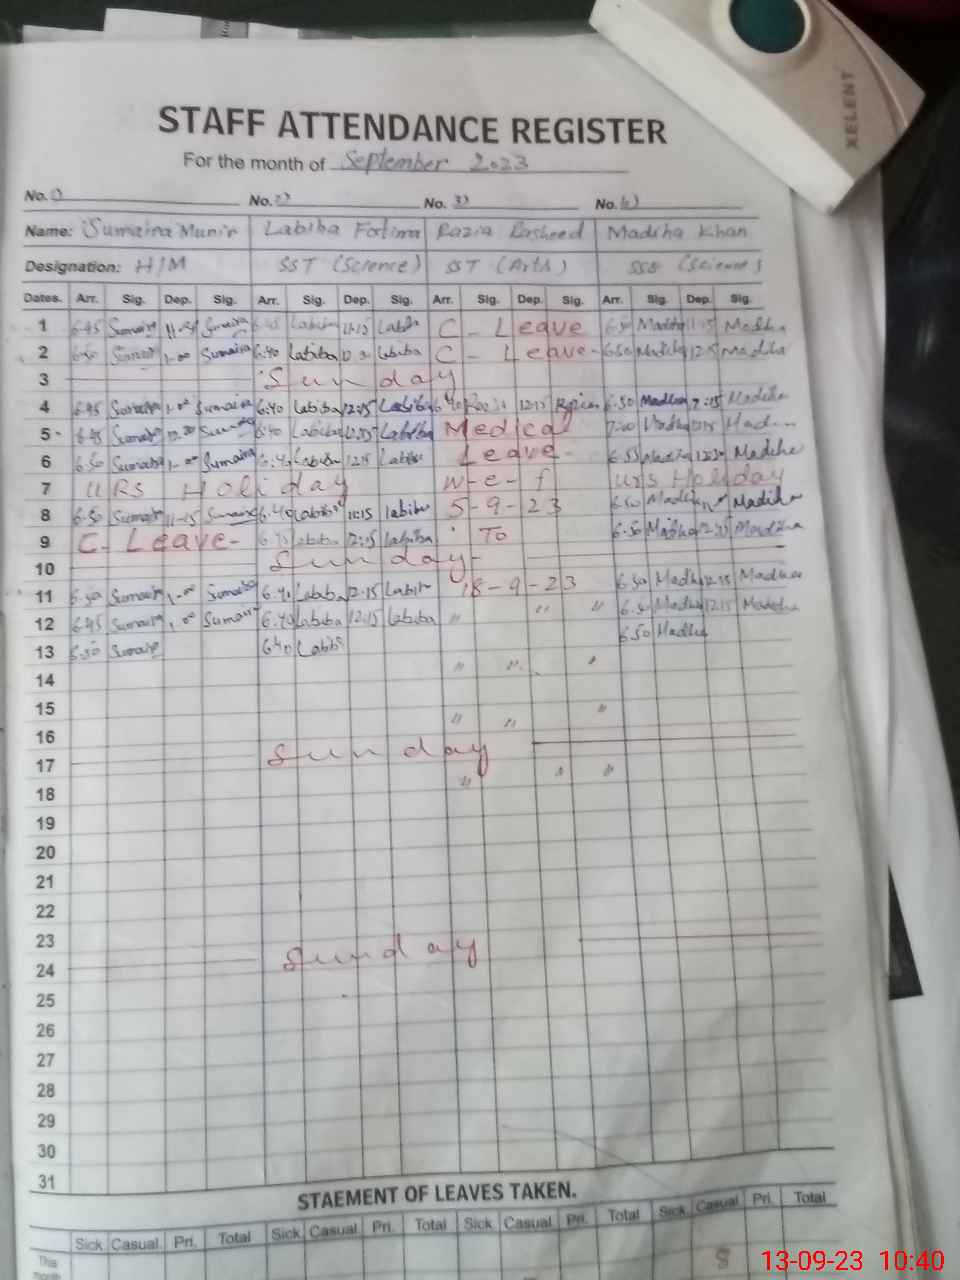 XELENT
STAFF ATTENDANCE REGISTER
For the month of September 2023
No. 1) No. 2) No. 3) No. 4)
Name: Sumaira Munir Labiba Fatima Razia Rasheed Madiha Khan
Designation: H/M SST (Science) SST (Arts) (Science)
Dates. Arr. Sig. Dep. Sig. Arr. Sig. Dep. Sig. Arr. Sig. Dep. Sig. Arr. Sig. Dep. Sig.
1 6.45 Sumaira Sumaira 6.45 Labiba 11:15 Labiba C - Leave 6.50 Madiha 11:15 Madiha
2 Sumaira 1-00 Sumaira 6.40 Labiba Labiba C - Leave - 6.50 Madiha 12:15 Madiha
3 Sunday
4 6.45 Sumaira 1-00 Sumaira 6.40 Labiba 12:15 Labiba 6.40 Razia 12:15 Razia 6.50 Madiha 12:15 Madiha
5 6.45 Sumaira Sumaira 6.40 Labiba Labiba Medical 7:00 Madiha
6 6.50 Sumaira 1-00 Sumaira 6.40 Labiba 12:15 Labiba Leave - 6.55 Madiha 12:30 Madiha
7 URS Holiday W-e-f Urs Holiday
8 6.50 Sumaira 11-15 Sumaira 6.40 Labiba 11:15 Labiba 5-9-23 6.50 Madiha Madiha
9 C. Leave - Labiba 12:15 Labiba To 6.50 Madiha Madiha
10 Sunday -
11 6.50 Sumaira 1-00 Sumaira 6.40 Labiba 12:15 Labiba 18-9-23 6.50 Madiha 12:15 Madiha
12 6.45 Sumaira 1-00 Sumaira 6.40 Labiba 12:15 Labiba " " " Madiha 12:15 Madiha
13 6.50 Sumaira 6.40 Labiba 6.50 Madiha
14 " " "
15
16 " " "
17 Sunday
18 " " "
19
20
21
22
23
24 Sunday
25
26
27
28
29
30
31
STAEMENT OF LEAVES TAKEN.
Sick Casual Pri. Total Sick Casual Pri. Total Sick Casual Pri. Total Sick Casual Pri. Total
This month 8
13-09-23 10:40